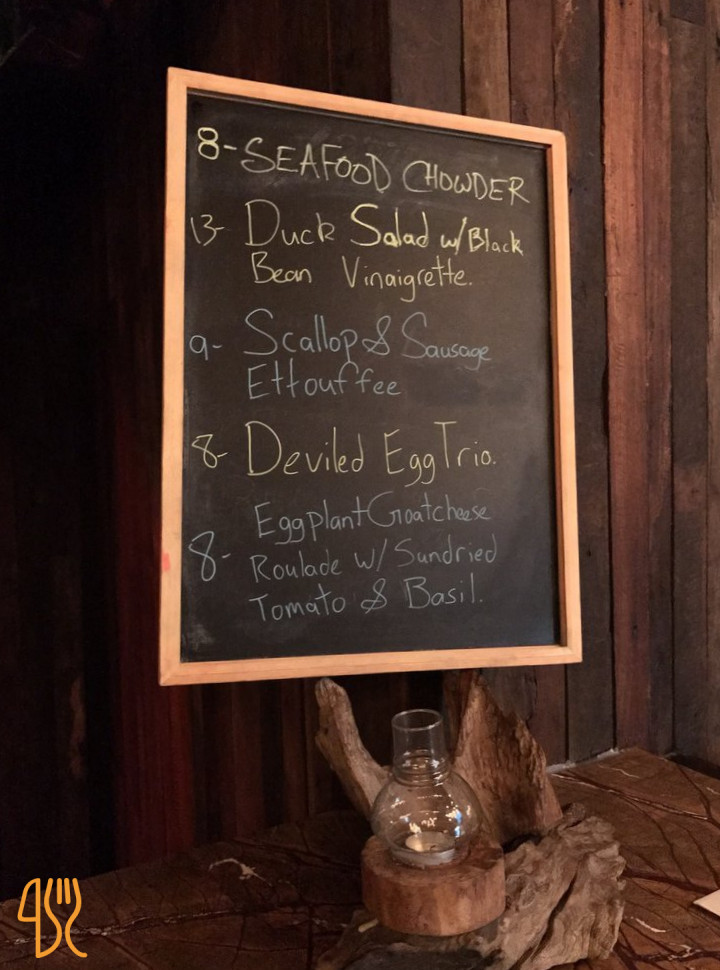 8-SEAFOOD CHOWDER
13- Duck Salad w/Black
Bean Vinaigrette.
9- Scallop & Sausage
Ettouffee
8- Deviled Egg Trio.
Eggplant Goatcheese
8- Roulade w/Sundried
Tomato & Basil.